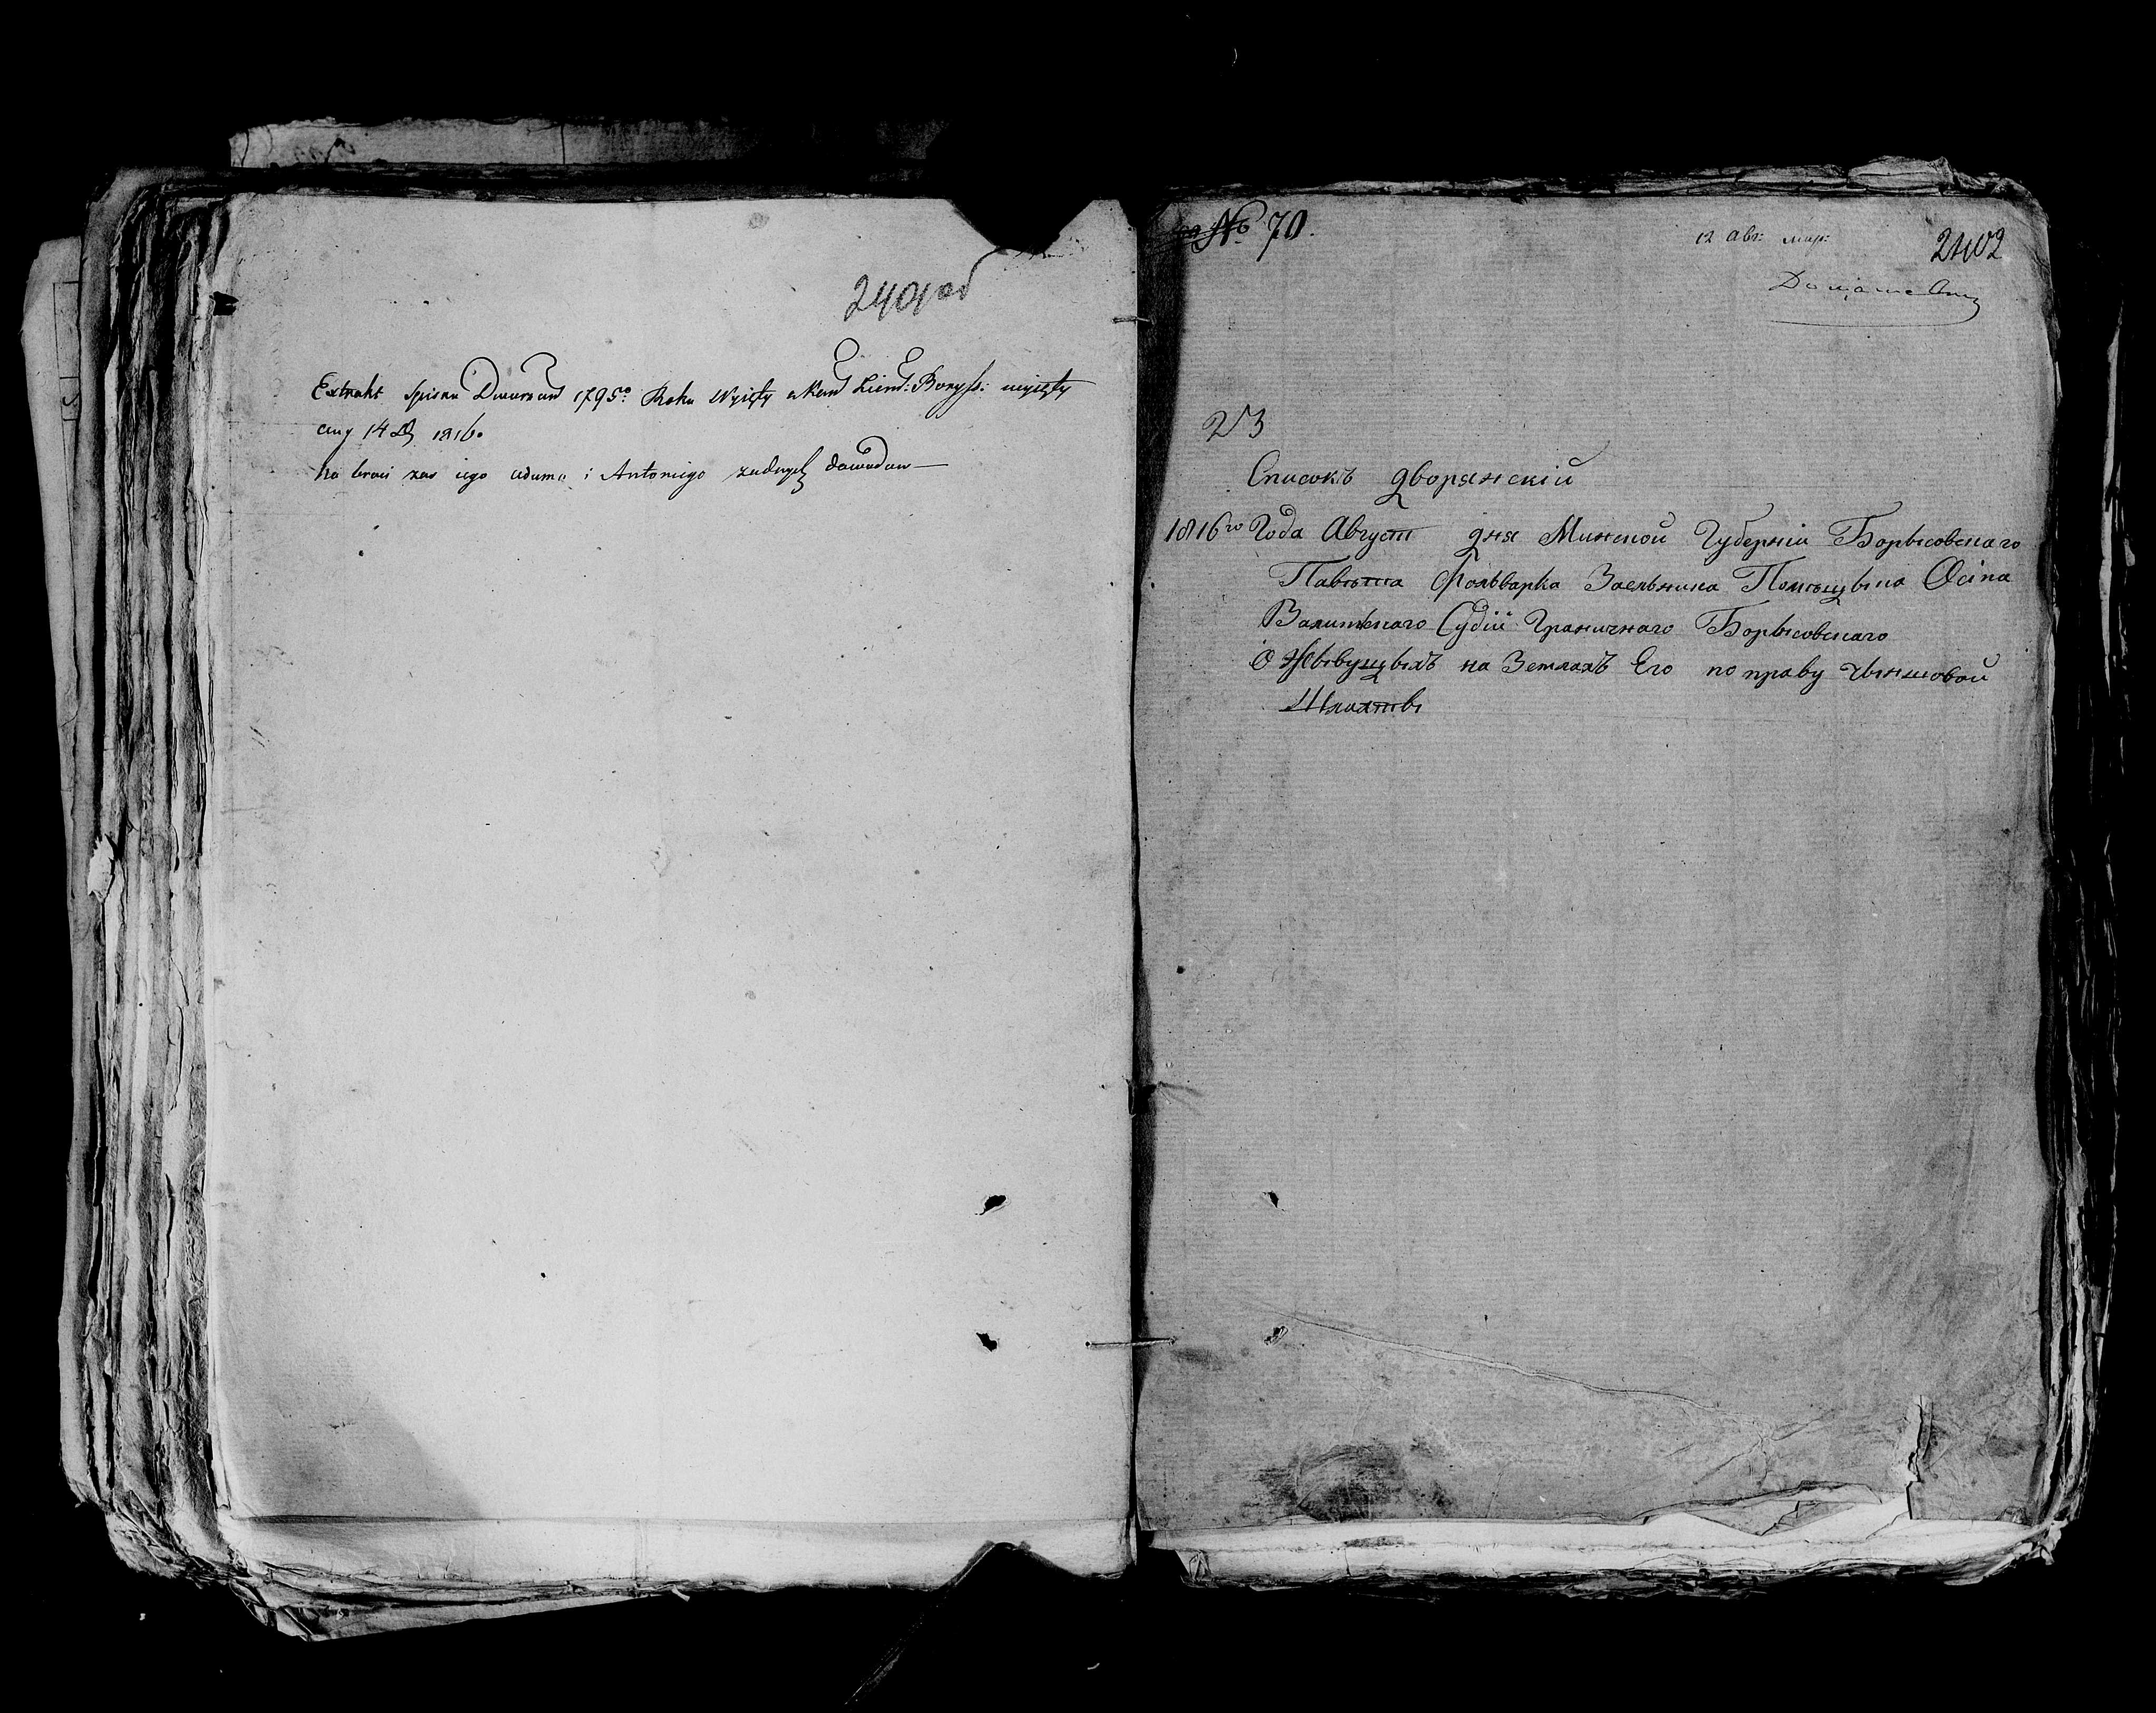 2401 об
Extrakt Spisku Dworzan 1795º Roku Wyięty z Kan Ziem: Borys: wyięty
aug 14 D 1816.
Na braci zas iego Adama i Antoniego zadnych dowodow —
№ 70.
12 Авг: мар:
2402
23
Списокъ дворянскій
1816го Года Август дня Минской Губерніи Борысовскаго
Павѣта Фольварка Заельника Помѣщыка Осіпа
Валицкаго Судіи Граничнаго Борысовскаго
О Жывущыхъ на Земляхъ Его по праву чыншовой
Шляхты